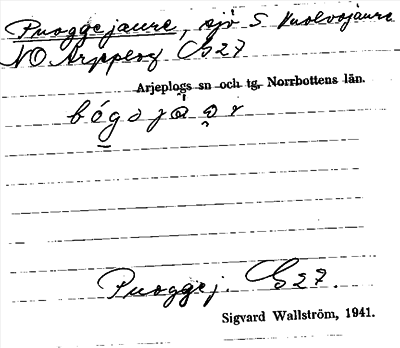 Puoggejaure, sjö S Kuolvojaure
NO Arjeplog G27
Arjeplogs sn och tg. Norrbottens län.
Puoggej. G27.
Sigvard Wallström, 1941.